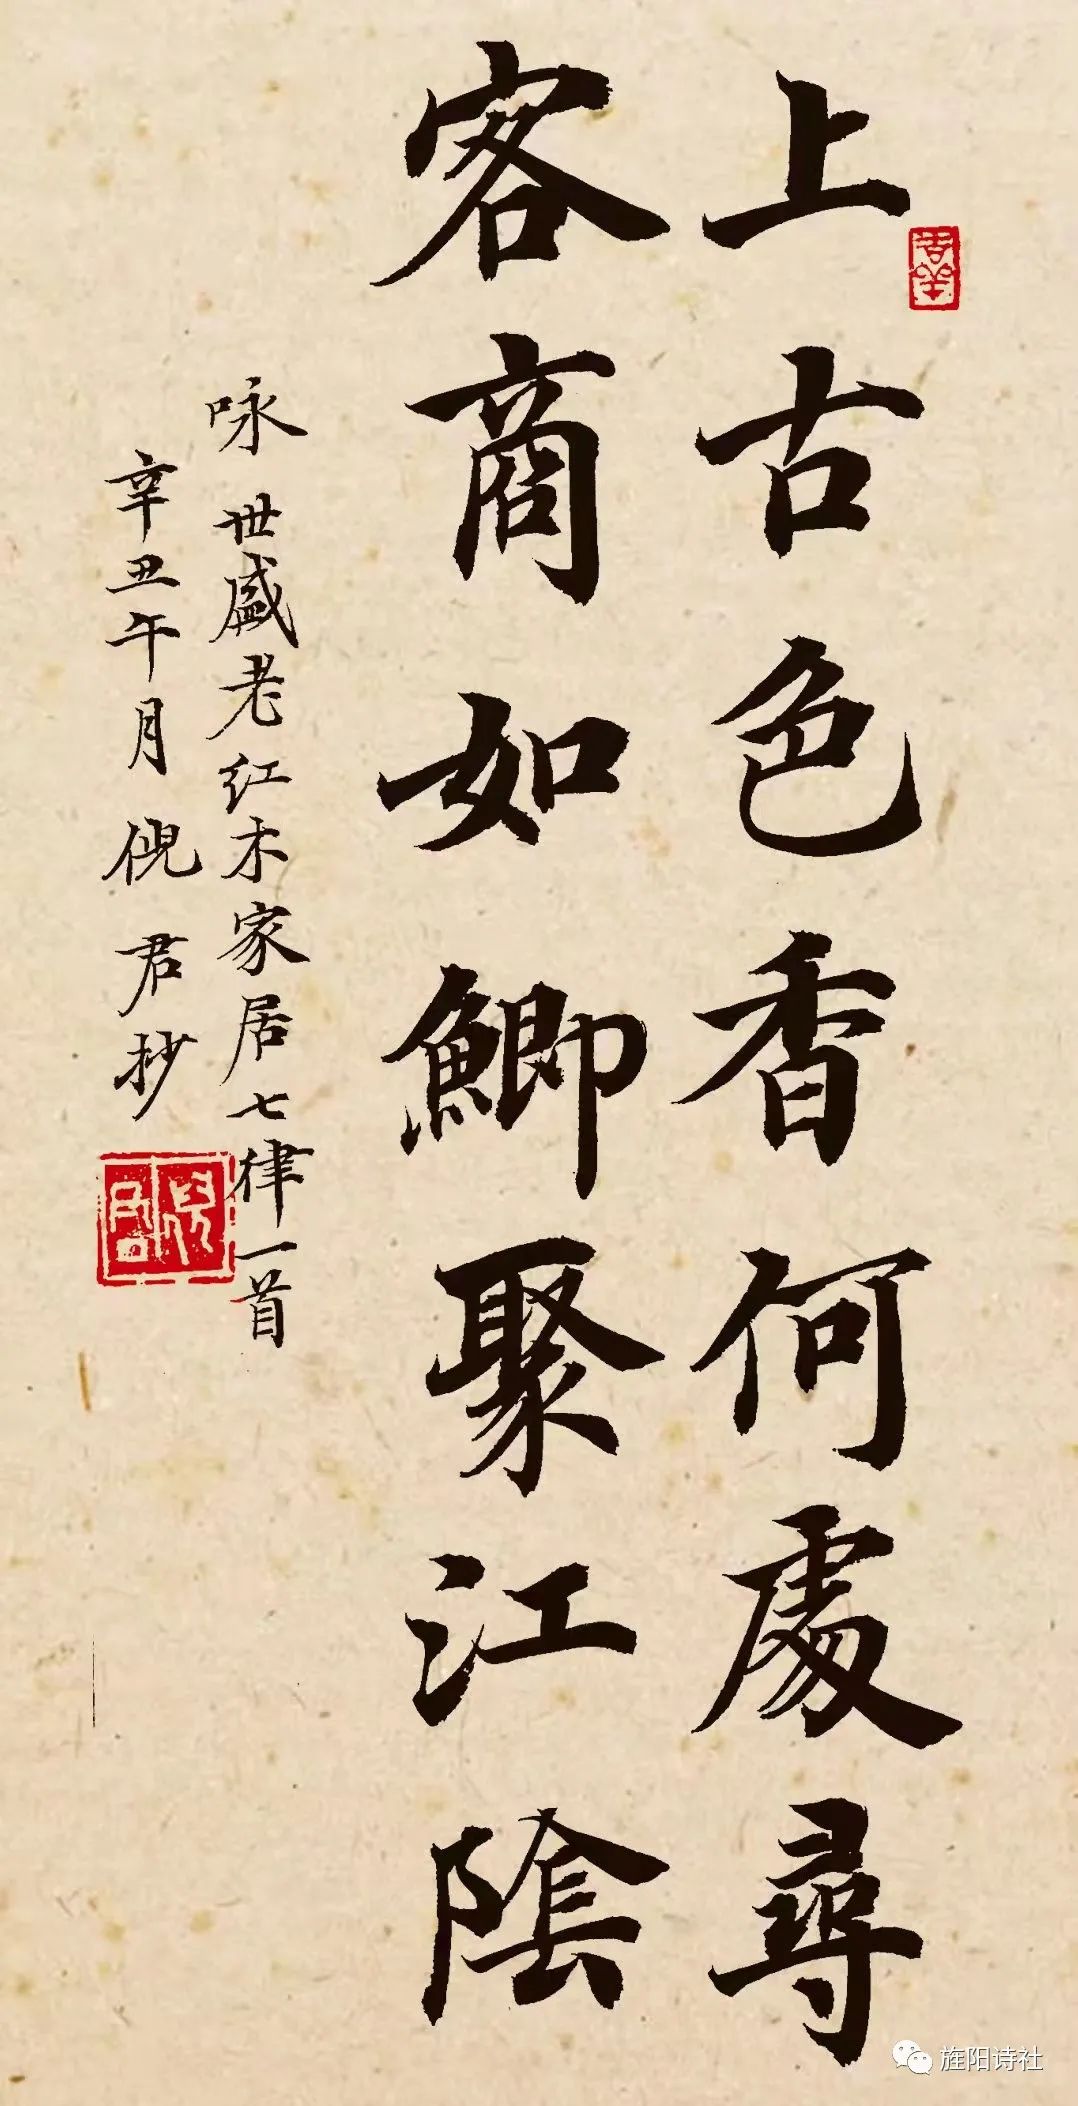 上古色香何處尋
客商如鯽聚江陰
咏世盛老红木家居七律一首
辛丑午月倪君抄
倪君
旌阳诗社